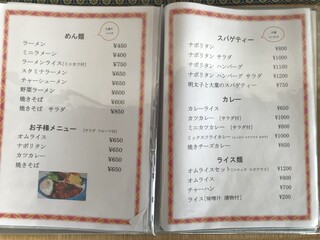 めん類
ラーメン ¥450
ミニラーメン ¥400
ラーメンライス(ミニカツ付) ¥750
スタミナラーメン ¥650
チャーシューメン ¥650
野菜ラーメン ¥600
焼きそば ¥600
焼きそば サラダ ¥850
お子様メニュー (サラダ フルーツ付)
オムライス ¥650
ナポリタン ¥650
カツカレー ¥650
焼きそば ¥650
スパゲティー
ナポリタン ¥800
ナポリタン サラダ ¥1000
ナポリタン ハンバーグ ¥1100
ナポリタン ハンバーグ サラダ ¥1200
明太子と大葉のスパゲティー ¥750
カレー
カレーライス ¥650
カツカレー [サラダ付] ¥1000
ミニカツカレー [サラダ付] ¥800
ミックスフライカレー
焼きチーズカレー ¥850
ライス類
オムライスセット ¥1200
オムライス ¥800
チャーハン ¥700
ライス[味噌汁 漬物付] ¥200